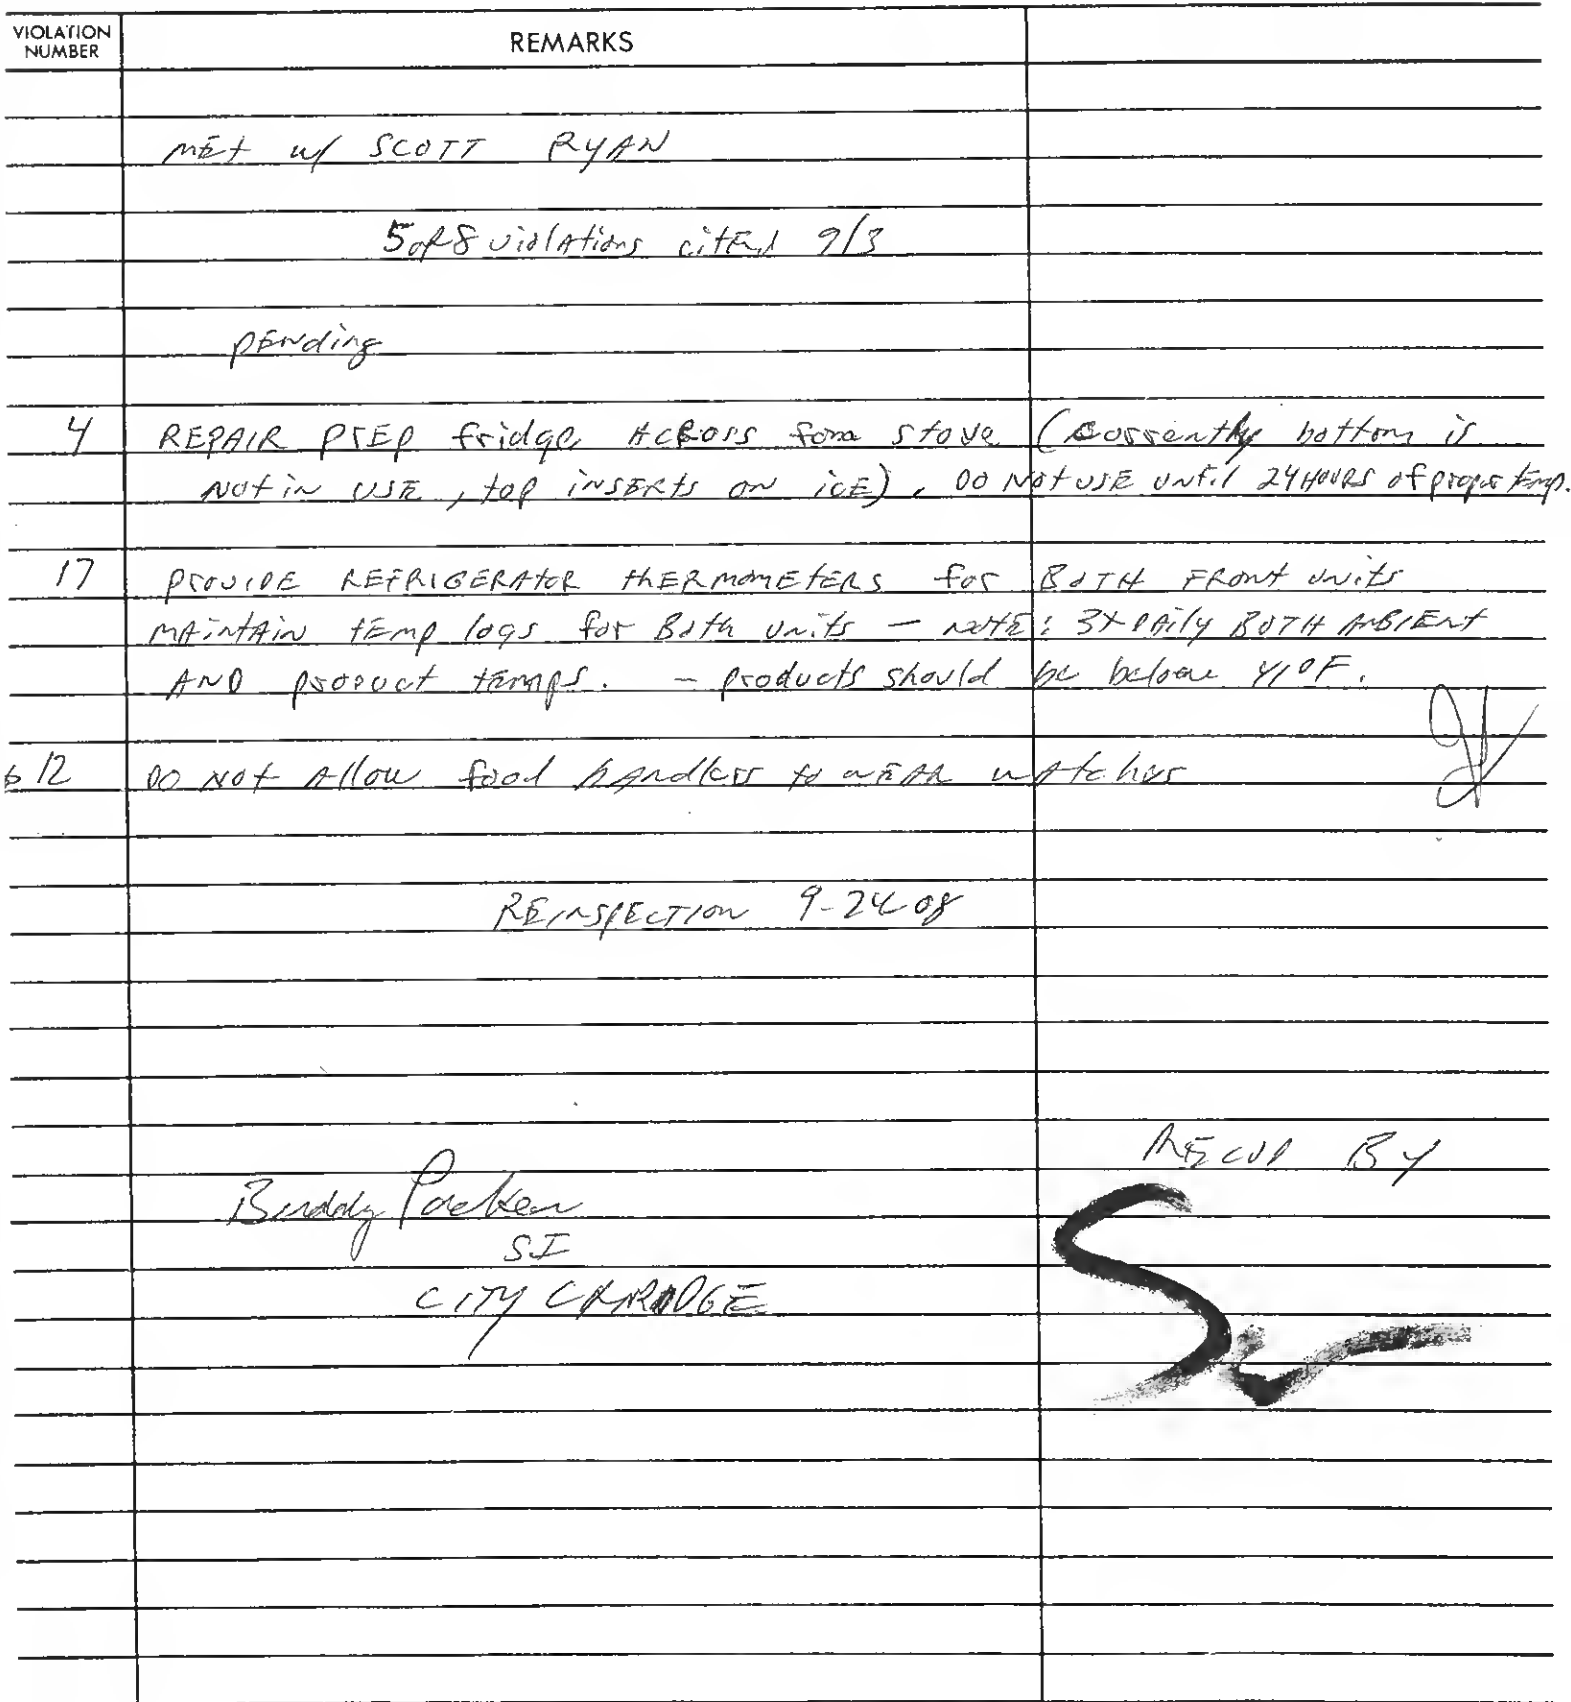 VIOLATION NUMBER REMARKS
MEt w/ SCOTT RYAN
5 of 8 violAtions citEd 9/3
pENding
4 REPAIR PREP fridge AcRoss from stove (currently bottom is
Not in USE, top insERts on icE). DO Not USE until 24 HOURS of proper temp.
17 PROVIDE REFRIGERAtoR thERmomEtERS for BOTH FRONt units
MAintAin tEmp logs for Both units — NotE: 3X DAily BOTH AMBIENt
AND product temps. — products should be below 41°F.
b 12 DO Not Allow food hAndlers to wEAR wAtches
REINSPECTION 9-24-08
RECVD BY
Buddy Packer
SI
CITY